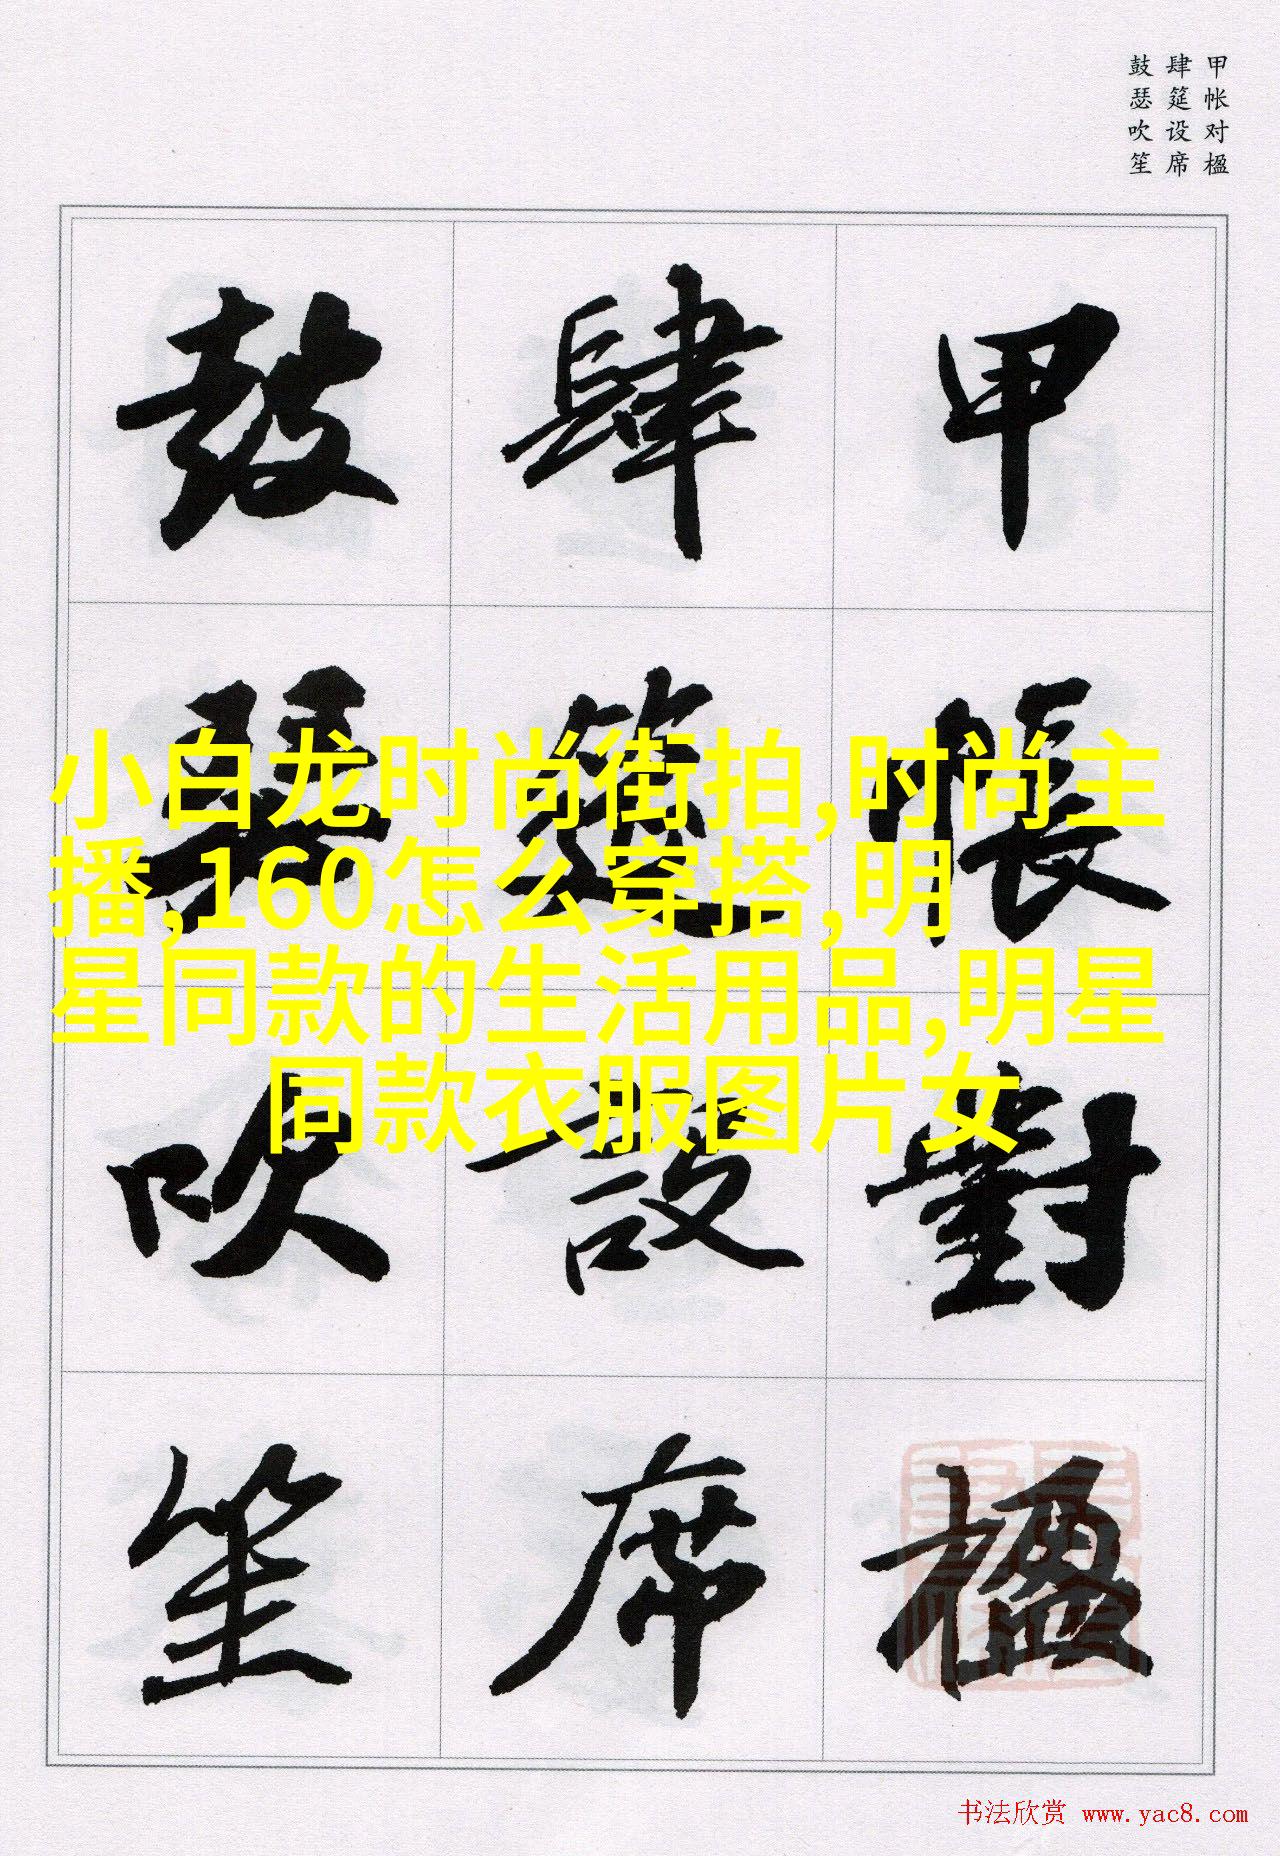 甲帐对楹
肆筵设席
鼓瑟吹笙
甲帳對楹
肆筵設席
鼓瑟吹笙
小白龙时尚街拍,时尚主
播,160怎么穿搭,明
星同款的生活用品,明星
同款衣服图片女
书法欣赏 www.yac8.com